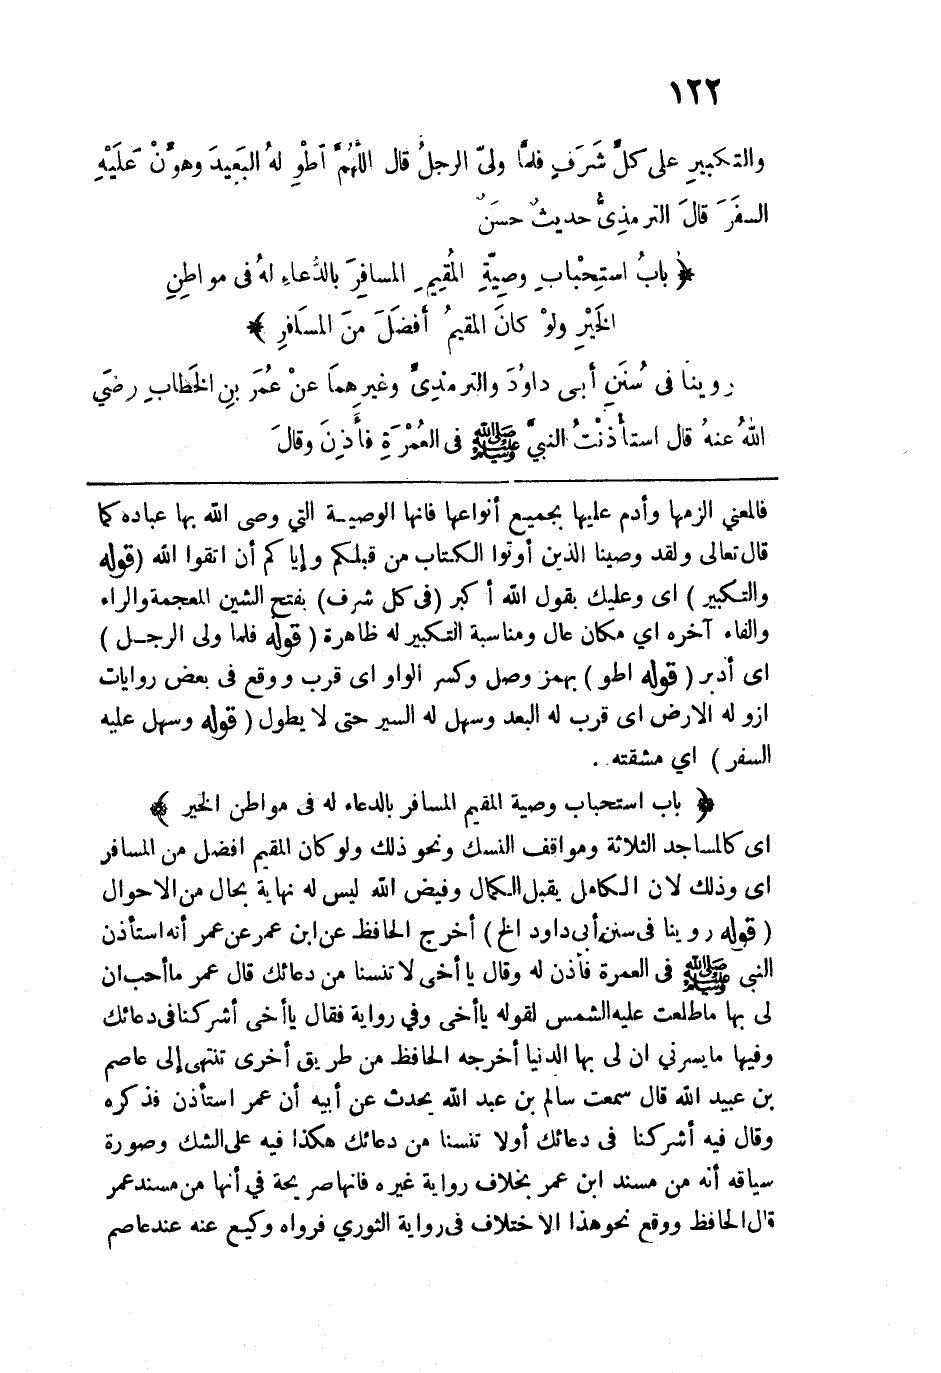 ١٢٢
والتكبيرِ على كلِّ شَرَفٍ فلمَّا ولىّ الرجلُ قال اللَّهُمَّ ٱطْوِ لهُ البَعِيدَ وهوِّنْ عَلَيْهِ
السفَرَ قالَ الترمذِىُّ حديثٌ حسَنٌ
﴿ بابُ استِحْبابِ وصِيَّةِ المُقِيمِ المسافِرَ بالدُّعاءِ لهُ فى مواطِنِ
الخَيْرِ ولوْ كانَ المقيمُ أفضَلَ منَ المسَافرِ ﴾
روينا فى سُنَنِ أبى داوُدَ والترمذِىِّ وغيرِهمَا عنْ عُمَرَ بنِ الخَطابِ رضىَ
اللهُ عنهُ قال استأذنْتُ النبيَّ ﷺ فى العُمْرَةِ فأَذِنَ وقالَ
فالمعني الزمها وأدم عليها بجميع أنواعها فانها الوصية التي وصى الله بها عباده كما
قال تعالى ولقد وصينا الذين أوتوا الكتاب من قبلكم وإياكم أن اتقوا الله (قوله
والتكبير ) اى وعليك بقول الله أكبر (فى كل شرف) بفتح الشين المعجمة والراء
والفاء آخره اي مكان عال ومناسبة التكبير له ظاهرة ( قوله فلما ولى الرجل )
اى أدبر ( قوله اطو ) بهمز وصل وكسر الواو اى قرب ووقع فى بعض روايات
ازو له الارض اى قرب له البعد وسهل له السير حتى لا يطول ( قوله وسهل عليه
السفر ) اي مشقته .
﴿ باب استحباب وصية المقيم المسافر بالدعاء له فى مواطن الخير ﴾
اى كالمساجد الثلاثة ومواقف النسك ونحو ذلك ولو كان المقيم افضل من المسافر
اى وذلك لان الكامل يقبل الكمال وفيض الله ليس له نهاية بحال من الاحوال
( قوله روينا فى سنن أبى داود الخ ) أخرج الحافظ عن ابن عمر عن عمر أنه استأذن
النبي ﷺ فى العمرة فأذن له وقال يا أخى لا تنسنا من دعائك قال عمر ما أحب ان
لى بها ما طلعت عليه الشمس لقوله يا أخى وفي رواية فقال يا أخى أشركنا فى دعائك
وفيها ما يسرني ان لى بها الدنيا أخرجه الحافظ من طريق أخرى تنتهى إلى عاصم
بن عبيد الله قال سمعت سالم بن عبد الله يحدث عن أبيه أن عمر استأذن فذكره
وقال فيه أشركنا فى دعائك أولا تنسنا من دعائك هكذا فيه على الشك وصورة
سياقه أنه من مسند ابن عمر بخلاف رواية غيره فانها صريحة في أنها من مسند عمر
قال الحافظ ووقع نحو هذا الاختلاف فى رواية الثوري فرواه وكيع عنه عند عاصم